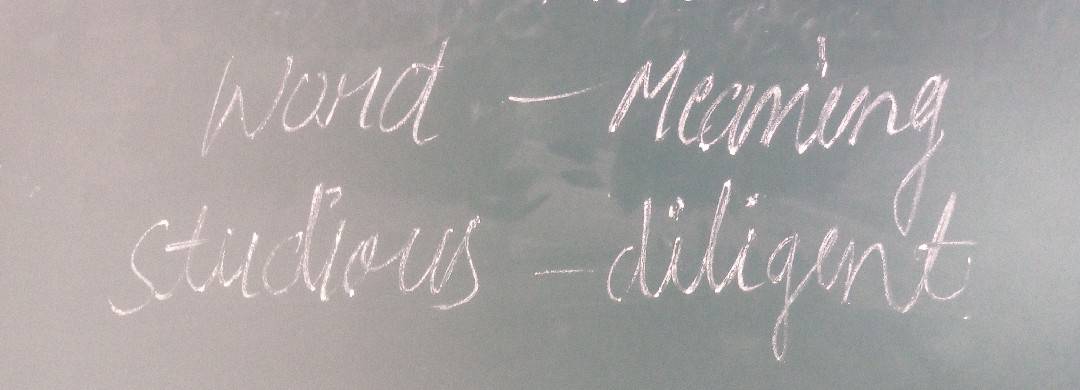 Word - Meaning
studious - diligent